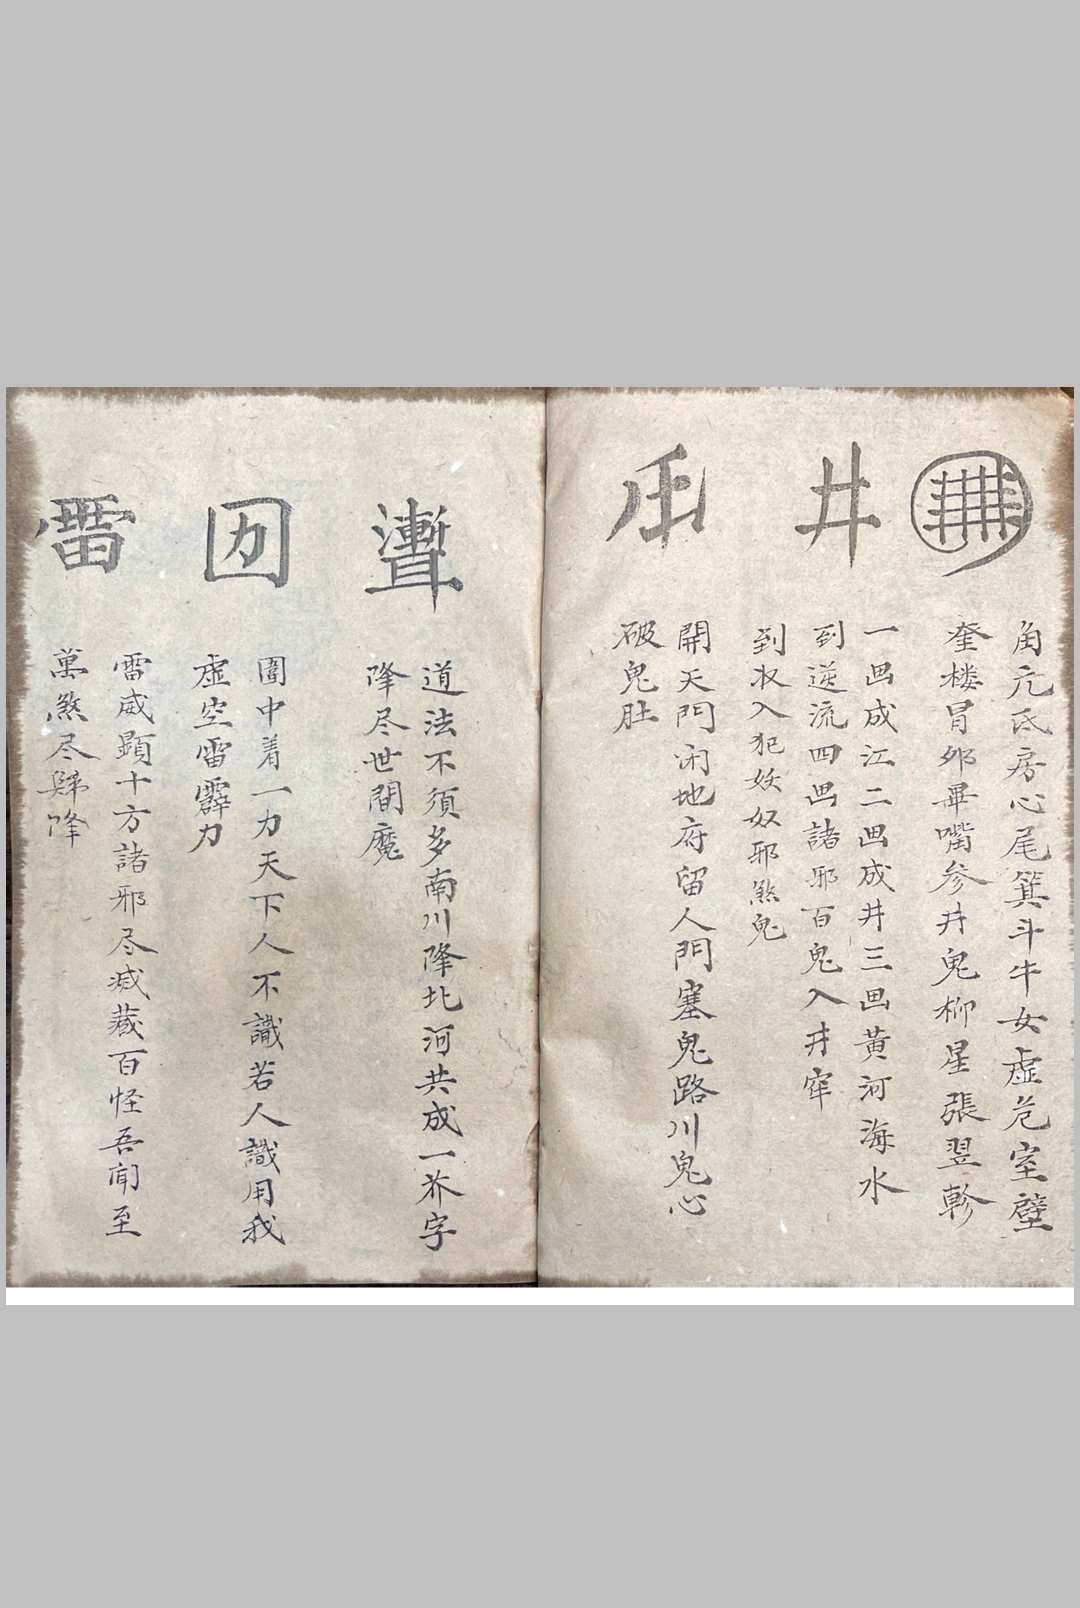 井
角亢氐房心尾箕斗牛女虛危室壁
奎楼冒邜畢嘴参井鬼柳星張翌軫
一画成江二画成井三画黄河海水
到逆流四画諸邪百鬼入井牢
到收入犯妖奴邪煞鬼
開天門闭地府留人門塞鬼路川鬼心
破鬼肚
囚
雷
道法不須多南川降北河共成一字
降尽世間魔
圍中着一力天下人不識若人識用我
虚空雷霹力
雷威顕十方諸邪尽减藏百怪吾闻至
萬煞尽歸降